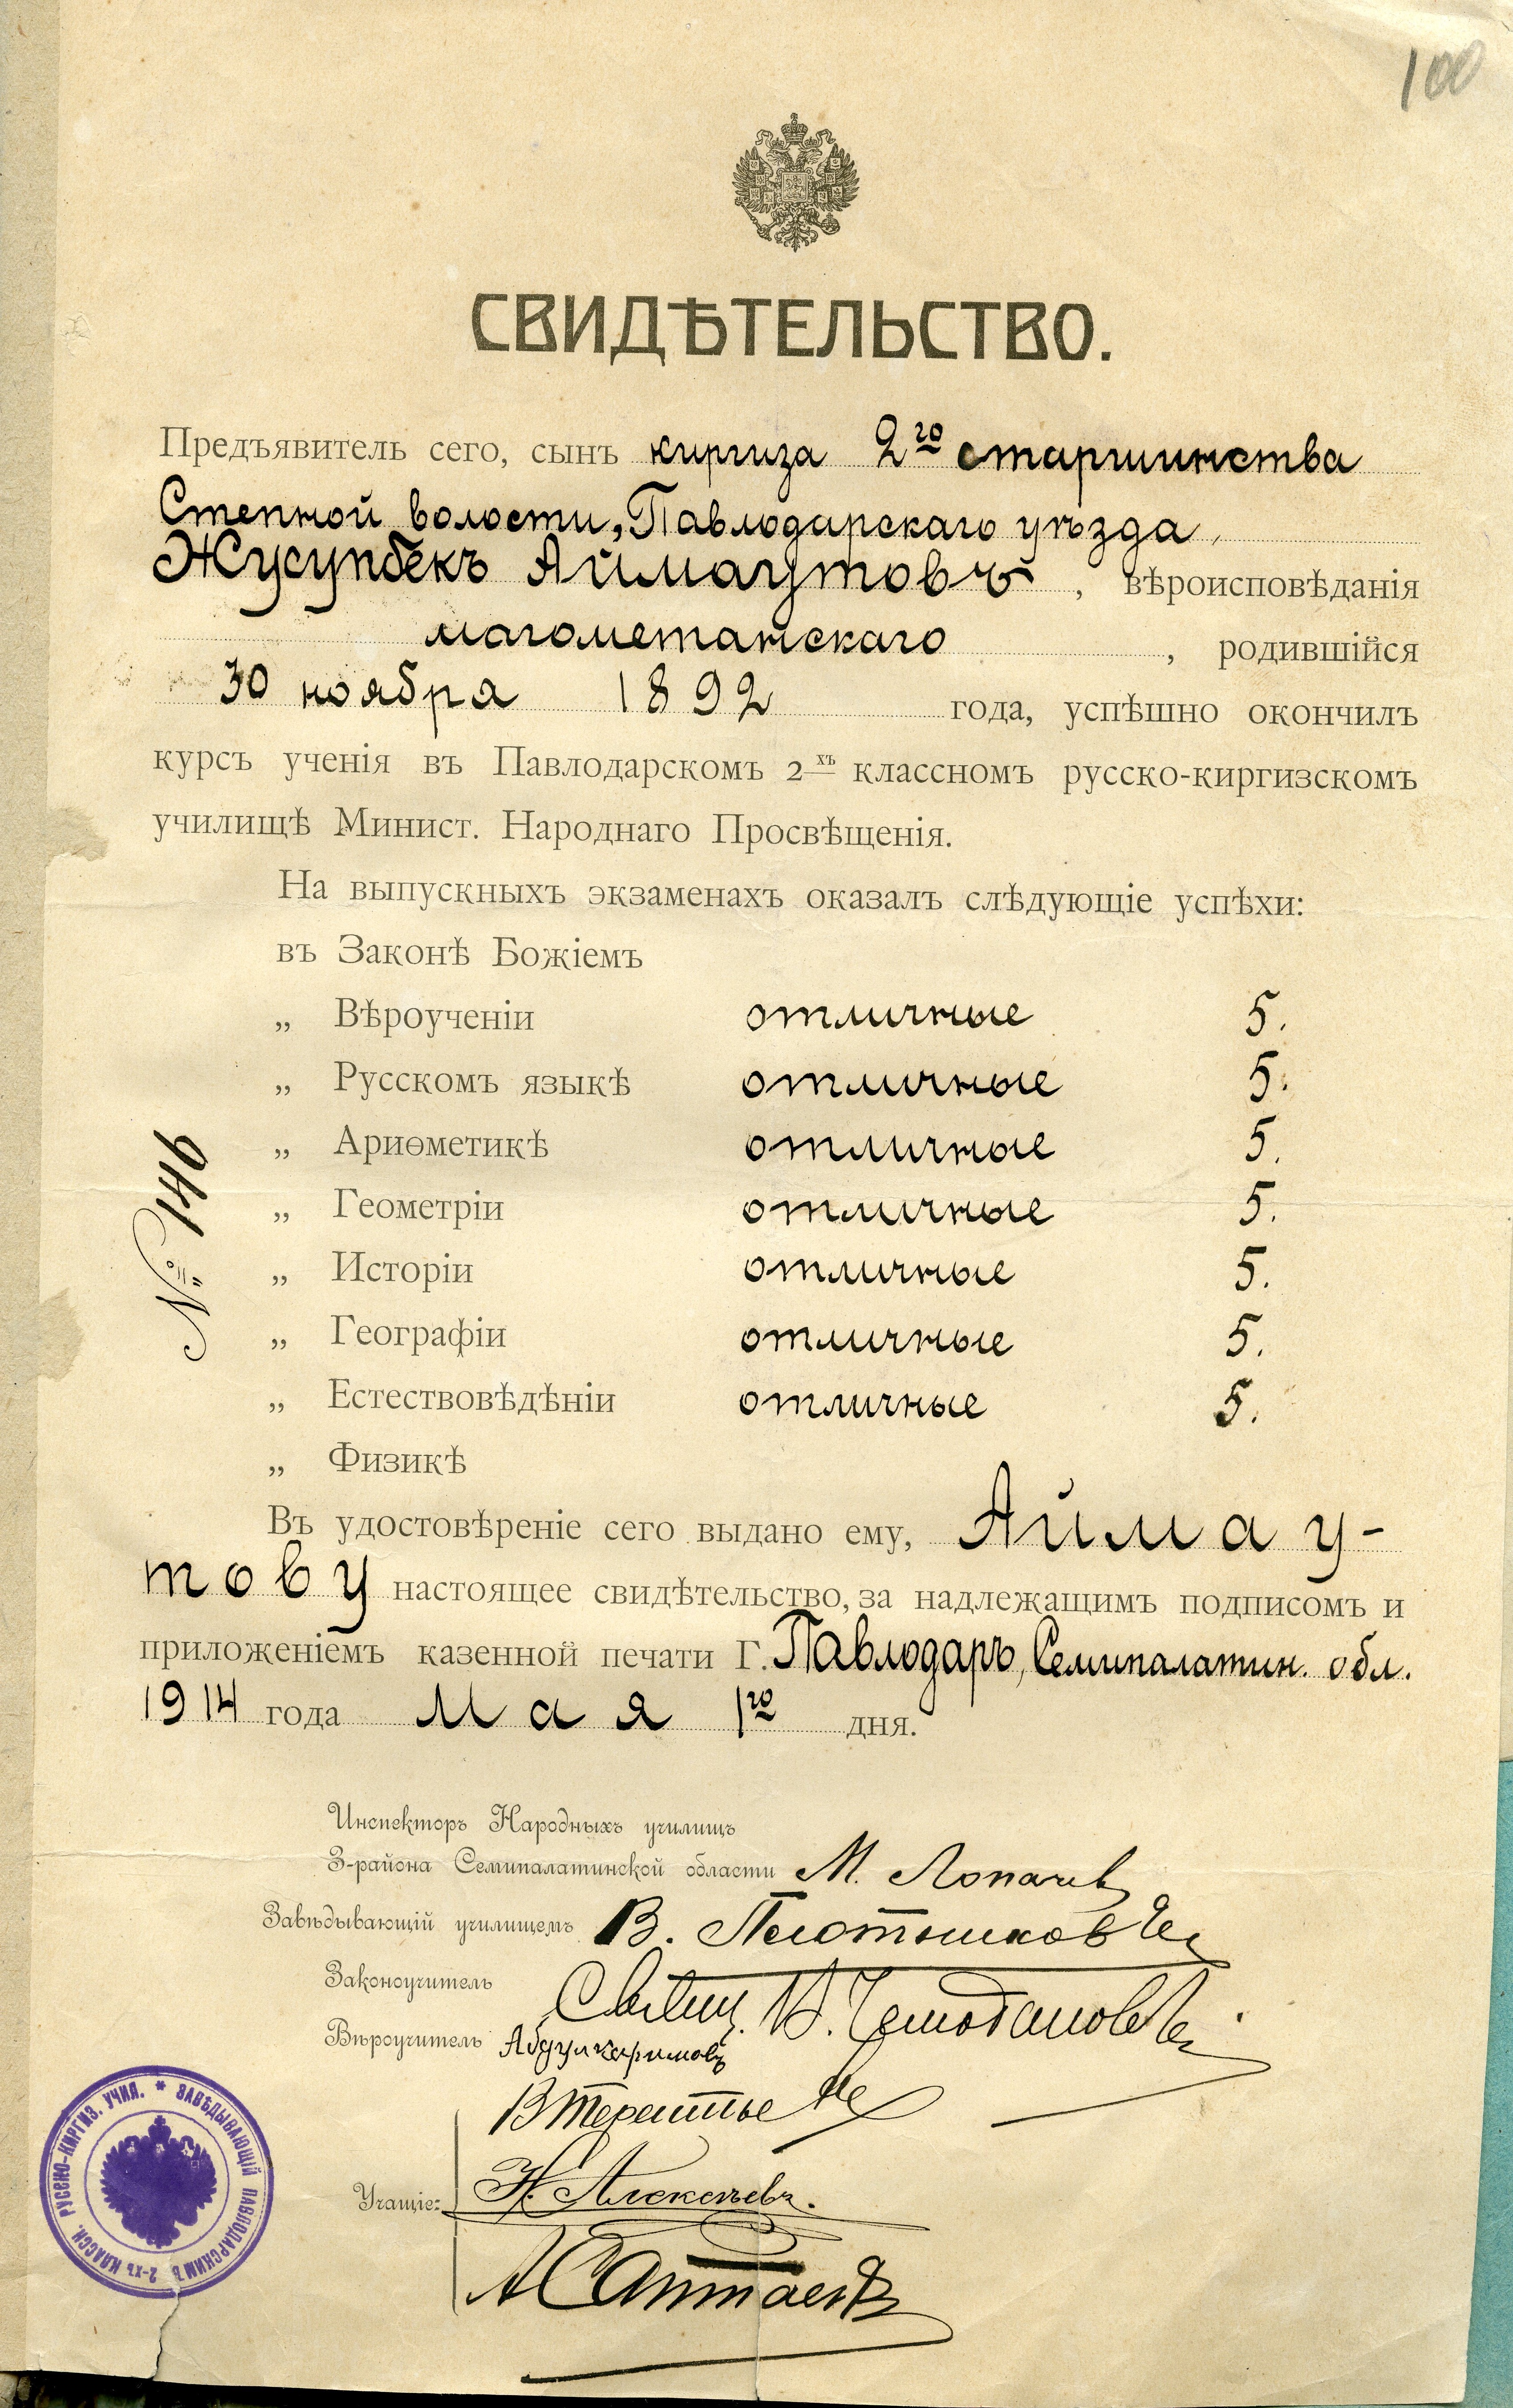 100
СВИДѢТЕЛЬСТВО.
Предъявитель сего, сынъ киргиза 2го старшинства
Степной волости, Павлодарскаго уѣзда,
Жусупбекъ Аймаутовъ, вѣроисповѣданія
магометанскаго, родившійся
30 ноября 1892 года, успѣшно окончилъ
курсъ ученія въ Павлодарскомъ 2-хъ классномъ русско-киргизскомъ
училищѣ Минист. Народнаго Просвѣщенія.
На выпускныхъ экзаменахъ оказалъ слѣдующіе успѣхи:
въ Законѣ Божіемъ
„ Вѣроученіи отличные 5.
„ Русскомъ языкѣ отличные 5.
„ Ариѳметикѣ отличные 5.
„ Геометріи отличные 5.
„ Исторіи отличные 5.
„ Географіи отличные 5.
„ Естествовѣдѣніи отличные 5.
„ Физикѣ
№ 146
Въ удостовѣреніе сего выдано ему, Аймау-
тову настоящее свидѣтельство, за надлежащимъ подписомъ и
приложеніемъ казенной печати Г. Павлодаръ, Семипалатин. обл.
1914 года мая 1го дня.
Инспекторъ Народныхъ училищъ
3-района Семипалатинской области М. Лопачев
Завѣдывающій училищемъ В. Плотников
Законоучитель Свящ. В. Чемоданов
Вѣроучитель Абдулкаримовъ
В Терентьев
Учащіе: Н. Алексѣевъ.
А Саттаевъ
ЗАВѢДЫВАЮЩІЙ ПАВЛОДАРСКИМЪ 2-ХЪ КЛАССН. РУССКО-КИРГИЗ. УЧИЛ. *